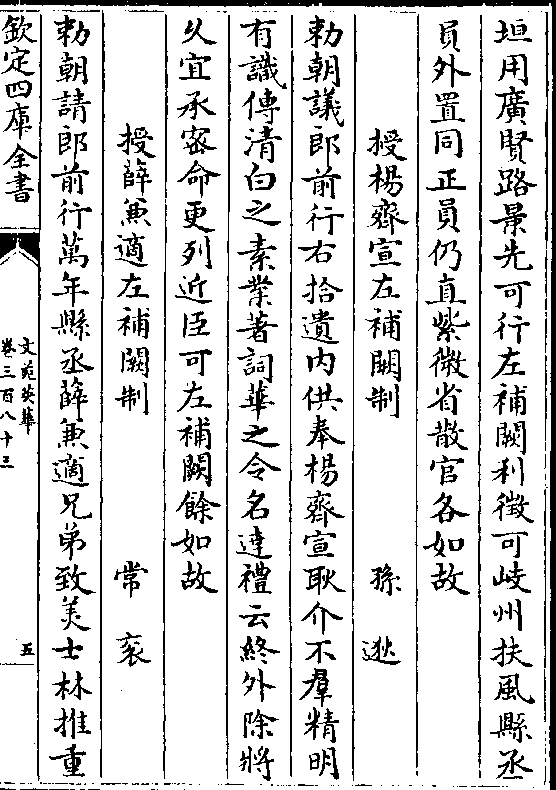 垣用廣賢路景先可行左補闕利徴可岐州扶風縣丞
員外置同正員仍直紫微省散官各如故
授楊齊宣左補闕制　孫逖
勅朝議郎前行右拾遺内供奉楊齊宣耿介不羣精明
有識傳清白之素業著詞華之令名達禮云終外除將
久宜承宻命更列近臣可左補闕餘如故
授薛兼適左補闕制　常衮
勅朝請郎前行萬年縣丞薛兼適兄弟致美士林推重
欽定四庫全書
文苑英華
卷三百八十三
五